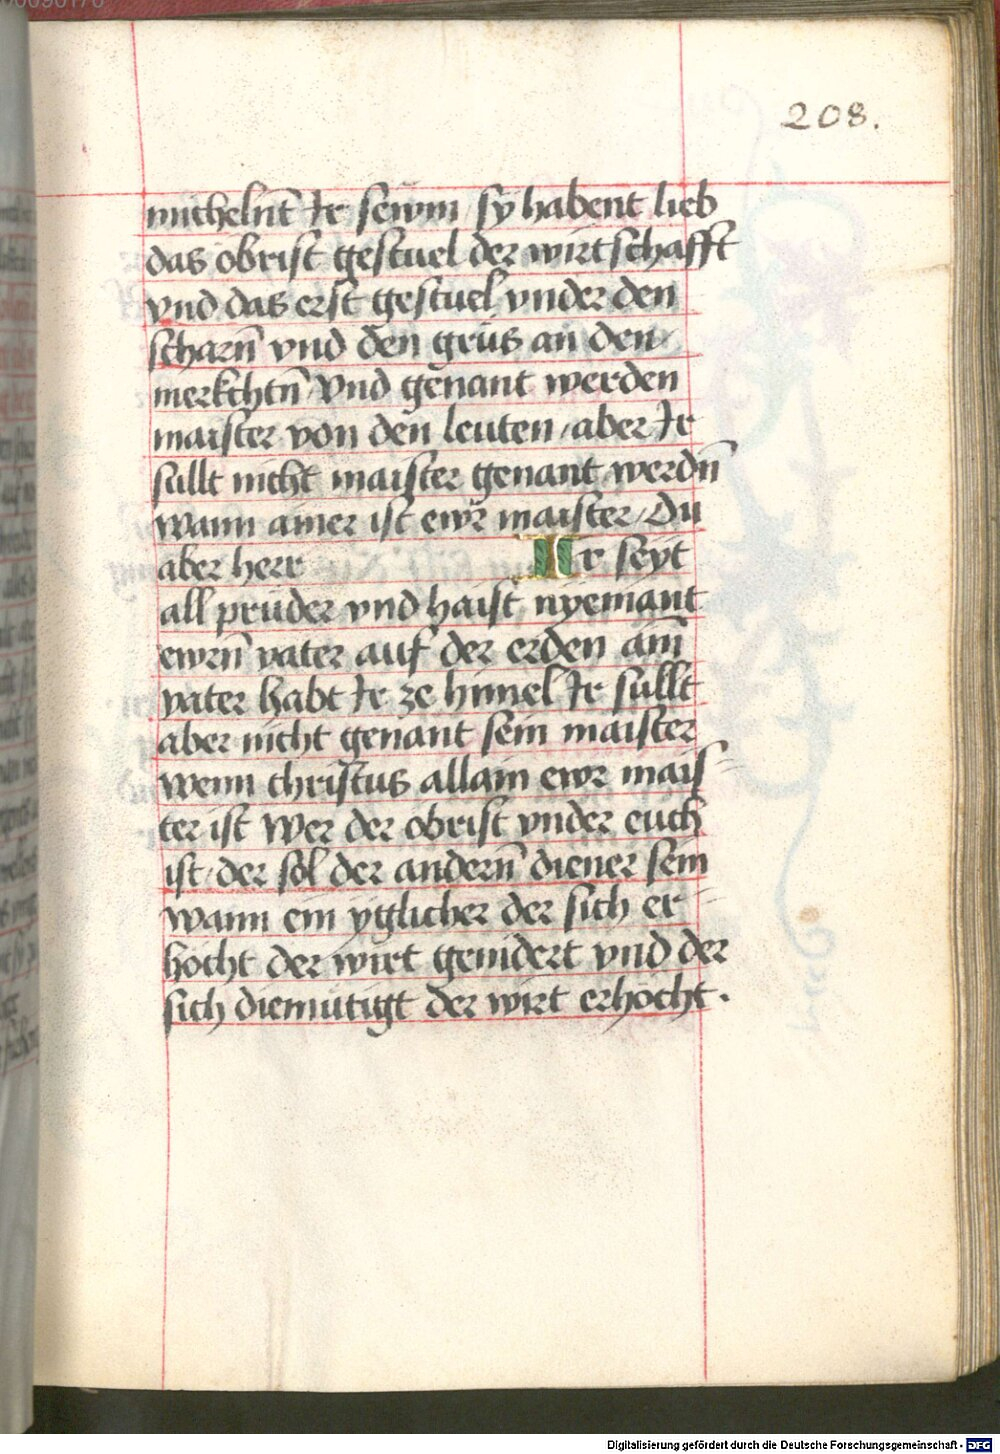 208.
michelnt Ir sewm / sy habent lieb
das obrist gestuel der wirtschafft
vnd das erst gestuel vnder den
scharn̄ vnd den grüs an den
merkchtn̄ / vnd genant werden
maister von den leuten / aber Ir
sullt nicht maister genant werdn̄
wann ainer ist ewr̄ maister / Du
aber herr Ir seyt
all prüder vnd haist nyemant
ewrn̄ vater auf der erden ain̄
vater habt Ir ze himel Ir sullt
aber nicht genant sein maister
wenn christus allain ewr mais⸗
ter ist wer der obrist vnder euch
ist / der sol der andern̄ diener sein
wann ein yglicher der sich er⸗
höcht der wirt genidert vnd der
sich diemütigt der wirt erhöcht.
Digitalisierung gefördert durch die Deutsche Forschungsgemeinschaft - DFG